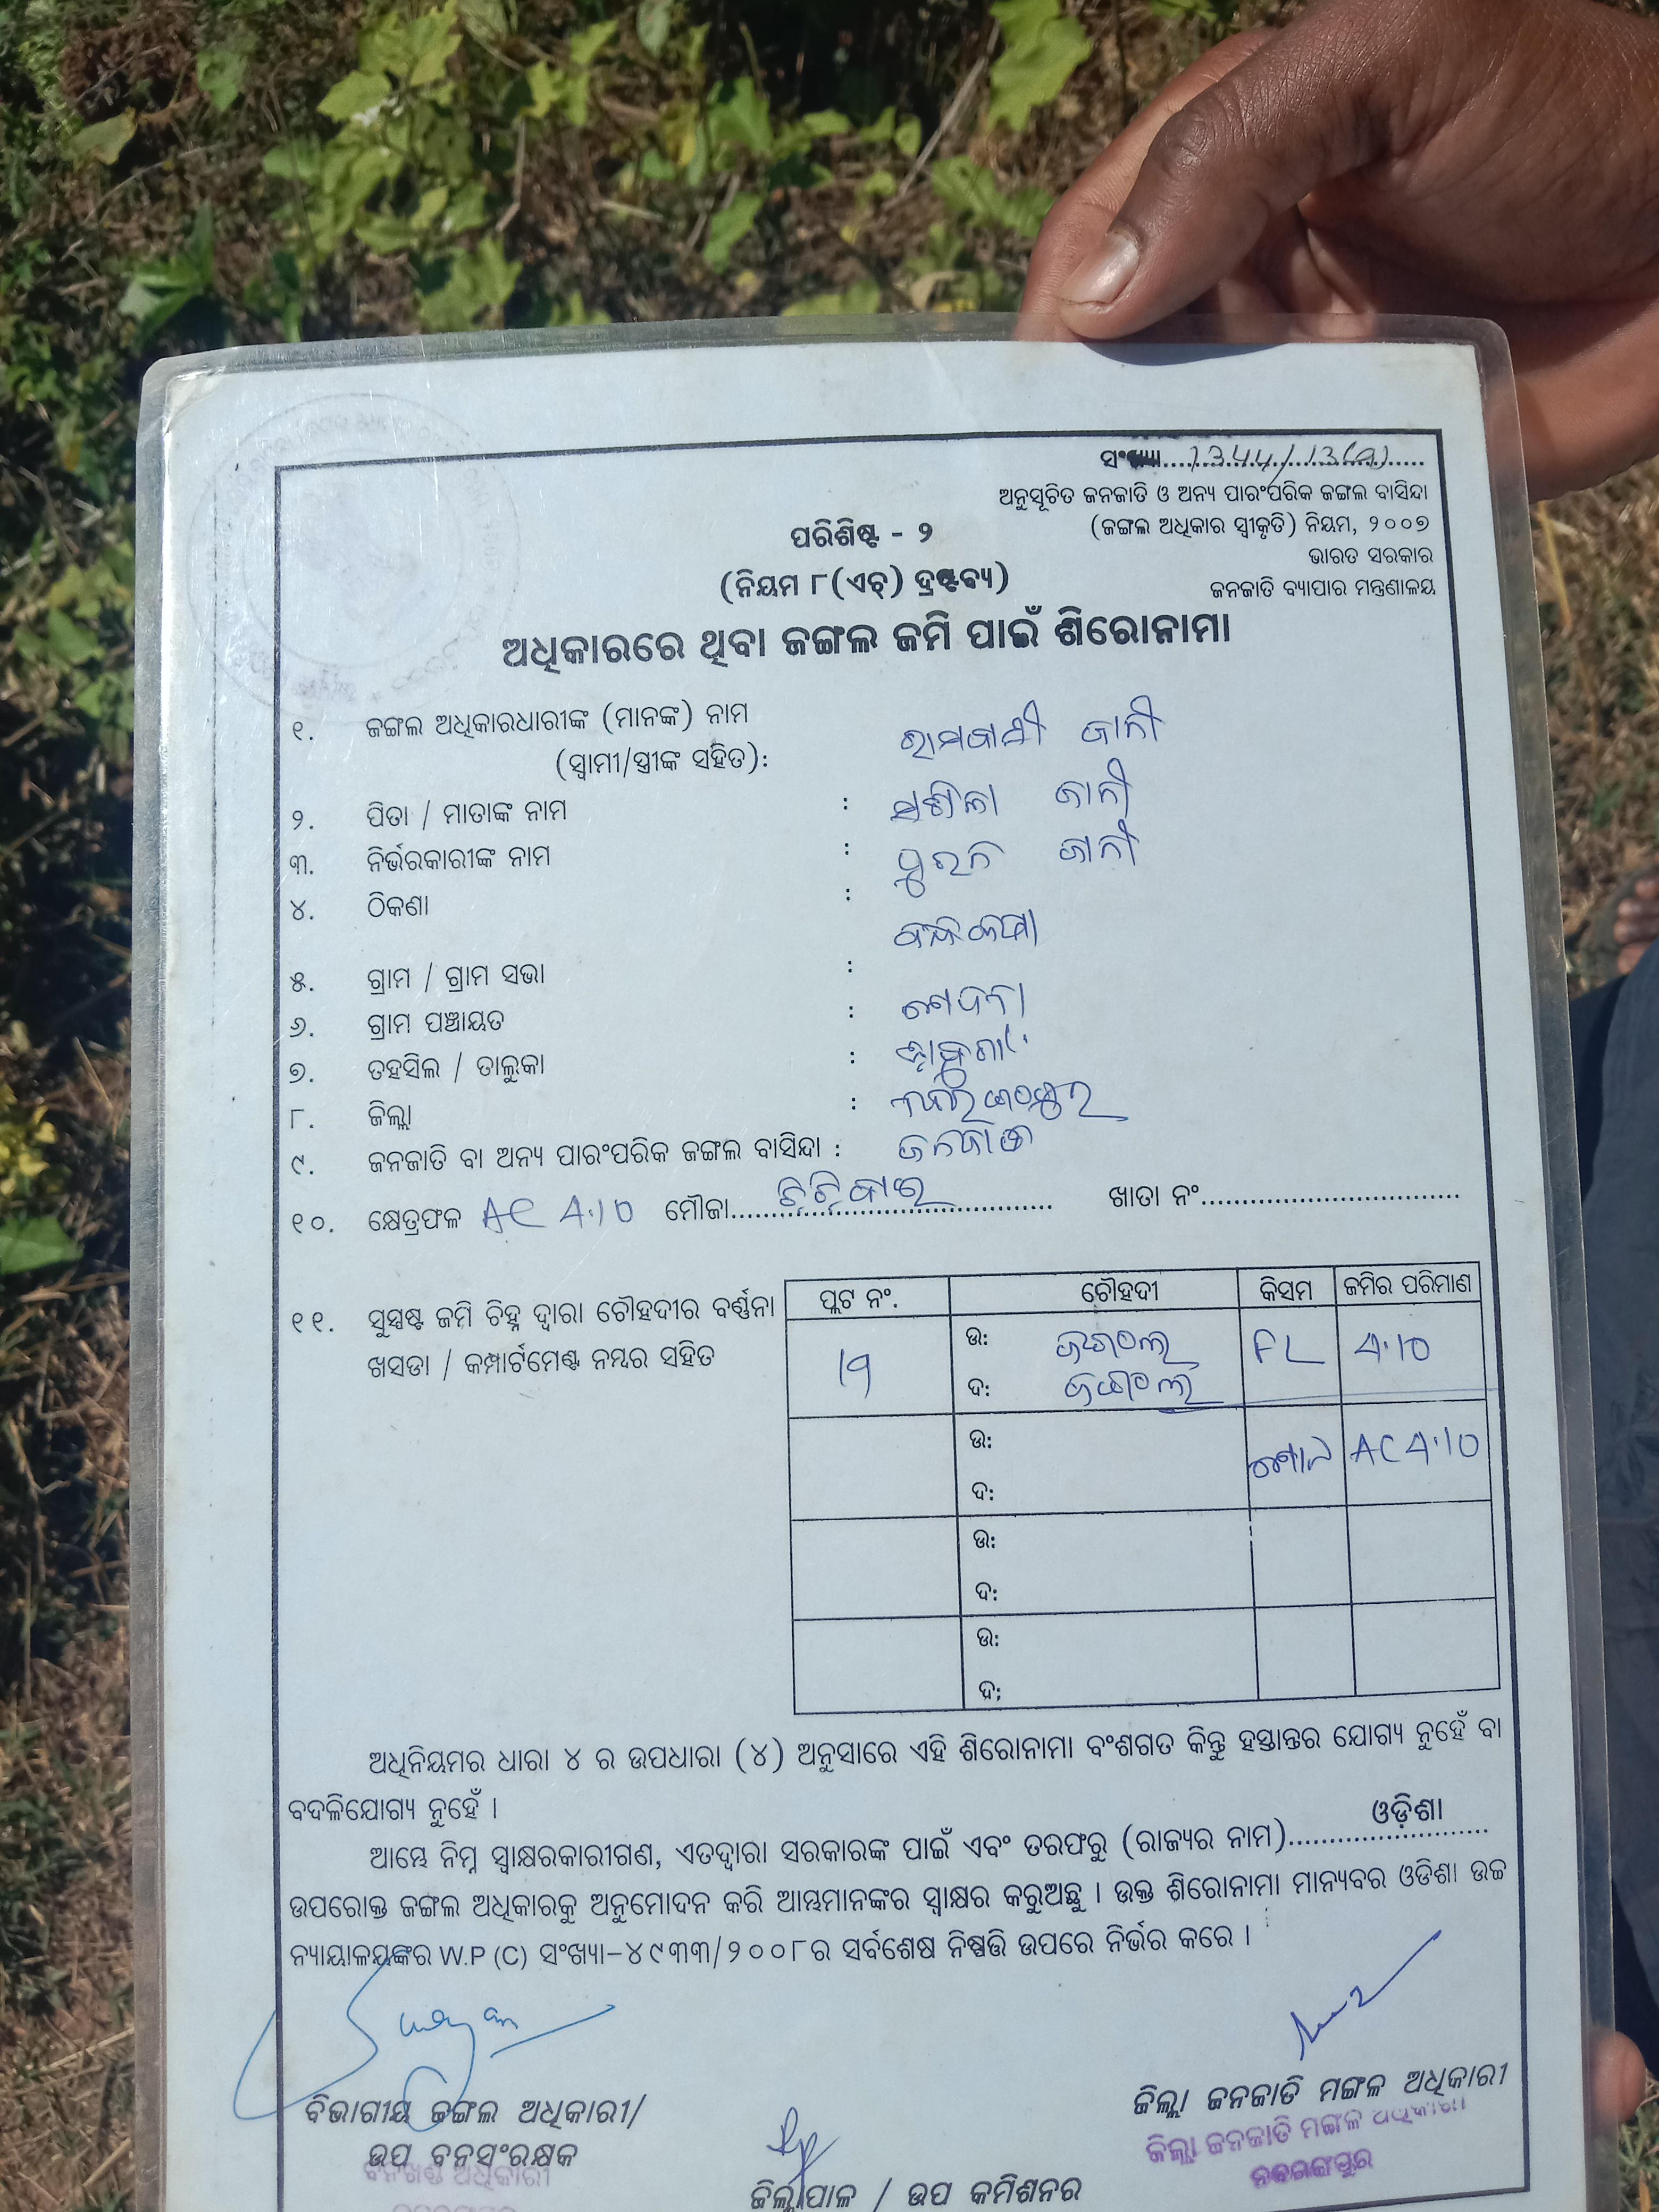 ସଂଖ୍ୟା......1344/13(a)......
ଅନୁସୂଚିତ ଜନଜାତି ଓ ଅନ୍ୟ ପାରଂପରିକ ଜଙ୍ଗଲ ବାସିନ୍ଦା
(ଜଙ୍ଗଲ ଅଧିକାର ସ୍ୱୀକୃତି) ନିୟମ, ୨୦୦୭
ଭାରତ ସରକାର
ଜନଜାତି ବ୍ୟାପାର ମନ୍ତ୍ରଣାଳୟ
ପରିଶିଷ୍ଟ - ୨
(ନିୟମ ୮(ଏଚ୍) ଦ୍ରଷ୍ଟବ୍ୟ)
ଅଧିକାରରେ ଥିବା ଜଙ୍ଗଲ ଜମି ପାଇଁ ଶିରୋନାମା
୧. ଜଙ୍ଗଲ ଅଧିକାରଧାରୀଙ୍କ (ମାନଙ୍କ) ନାମ
(ସ୍ୱାମୀ/ସ୍ତ୍ରୀଙ୍କ ସହିତ): ଜାନୀ
୨. ପିତା / ମାତାଙ୍କ ନାମ : ଜାନୀ
୩. ନିର୍ଭରକାରୀଙ୍କ ନାମ : ଜାନୀ
୪. ଠିକଣା :
୫. ଗ୍ରାମ / ଗ୍ରାମ ସଭା :
୬. ଗ୍ରାମ ପଞ୍ଚାୟତ :
୭. ତହସିଲ / ତାଲୁକା :
୮. ଜିଲ୍ଲା :
୯. ଜନଜାତି ବା ଅନ୍ୟ ପାରଂପରିକ ଜଙ୍ଗଲ ବାସିନ୍ଦା : ଜନଜାତି
୧୦. କ୍ଷେତ୍ରଫଳ AC 4.10 ମୌଜା............ ଖାତା ନଂ............
୧୧. ସୁସ୍ପଷ୍ଟ ଜମି ଚିହ୍ନ ଦ୍ୱାରା ଚୌହଦୀର ବର୍ଣ୍ଣନା
ଖସଡା / କମ୍ପାର୍ଟମେଣ୍ଟ ନମ୍ବର ସହିତ
ପ୍ଲଟ ନଂ. ଚୌହଦୀ କିସମ ଜମିର ପରିମାଣ
19 ଉ: ଜଙ୍ଗଲ FL 4.10
ଦ: ଜଙ୍ଗଲ
ଉ: ମୋଟ AC 4.10
ଦ:
ଉ:
ଦ:
ଉ:
ଦ:
ଅଧିନିୟମର ଧାରା ୪ ର ଉପଧାରା (୪) ଅନୁସାରେ ଏହି ଶିରୋନାମା ବଂଶଗତ କିନ୍ତୁ ହସ୍ତାନ୍ତର ଯୋଗ୍ୟ ନୁହେଁ ବା
ବଦଳିଯୋଗ୍ୟ ନୁହେଁ ।
ଆମ୍ଭେ ନିମ୍ନ ସ୍ୱାକ୍ଷରକାରୀଗଣ, ଏତଦ୍ୱାରା ସରକାରଙ୍କ ପାଇଁ ଏବଂ ତରଫରୁ (ରାଜ୍ୟର ନାମ)......ଓଡ଼ିଶା......
ଉପରୋକ୍ତ ଜଙ୍ଗଲ ଅଧିକାରକୁ ଅନୁମୋଦନ କରି ଆମ୍ଭମାନଙ୍କର ସ୍ୱାକ୍ଷର କରୁଅଛୁ । ଉକ୍ତ ଶିରୋନାମା ମାନ୍ୟବର ଓଡିଶା ଉଚ୍ଚ
ନ୍ୟାୟାଳୟଙ୍କର W.P (C) ସଂଖ୍ୟା-୪୯୩୩/୨୦୦୮ର ସର୍ବଶେଷ ନିଷ୍ପତ୍ତି ଉପରେ ନିର୍ଭର କରେ ।
ବିଭାଗୀୟ ଜଙ୍ଗଲ ଅଧିକାରୀ/
ଉପ ବନସଂରକ୍ଷକ
ବନଖଣ୍ଡ ଅଧିକାରୀ
ଜିଲ୍ଲାପାଳ / ଉପ କମିଶନର
ଜିଲ୍ଲା ଜନଜାତି ମଙ୍ଗଳ ଅଧିକାରୀ
ଜିଲ୍ଲା ଜନଜାତି ମଙ୍ଗଳ ଅଧିକାରୀ
ନବରଙ୍ଗପୁର